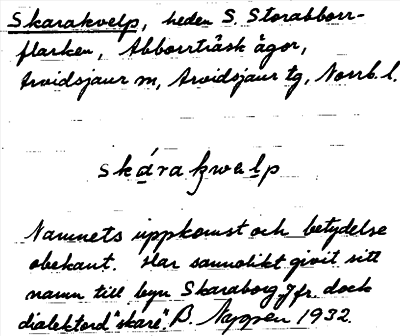 Skarakvelp, heden S. Storabborr-
flarken, Abborrträsk ägor,
Arvidsjaur sn, Arvidsjaur tg, Norrb. l.
skárakwelp
Namnets uppkomst och betydelse
obekant. Har sannolikt givit sitt
namn till byn Skaraborg. Jfr. dock
dialektord "skare" B. 1932.